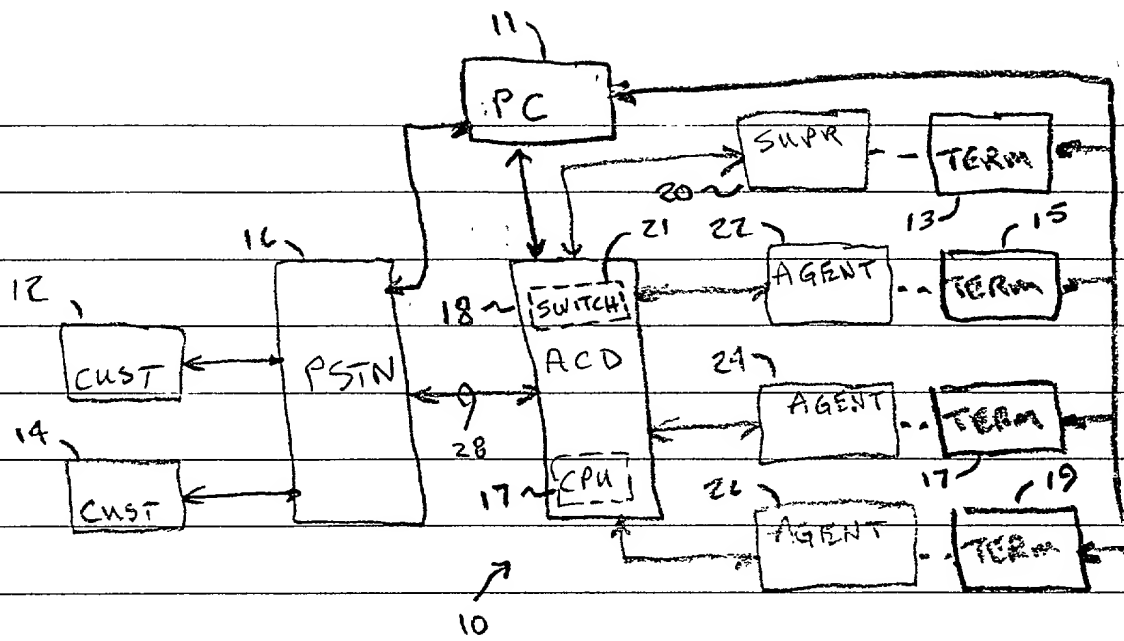 11
PC
SUPR
TERM
20
13
15
16
21
22
12
AGENT
TERM
18
SWITCH
CUST
PSTN
ACD
24
AGENT
TERM
14
28
CPU
17
26
17
19
CUST
AGENT
TERM
10